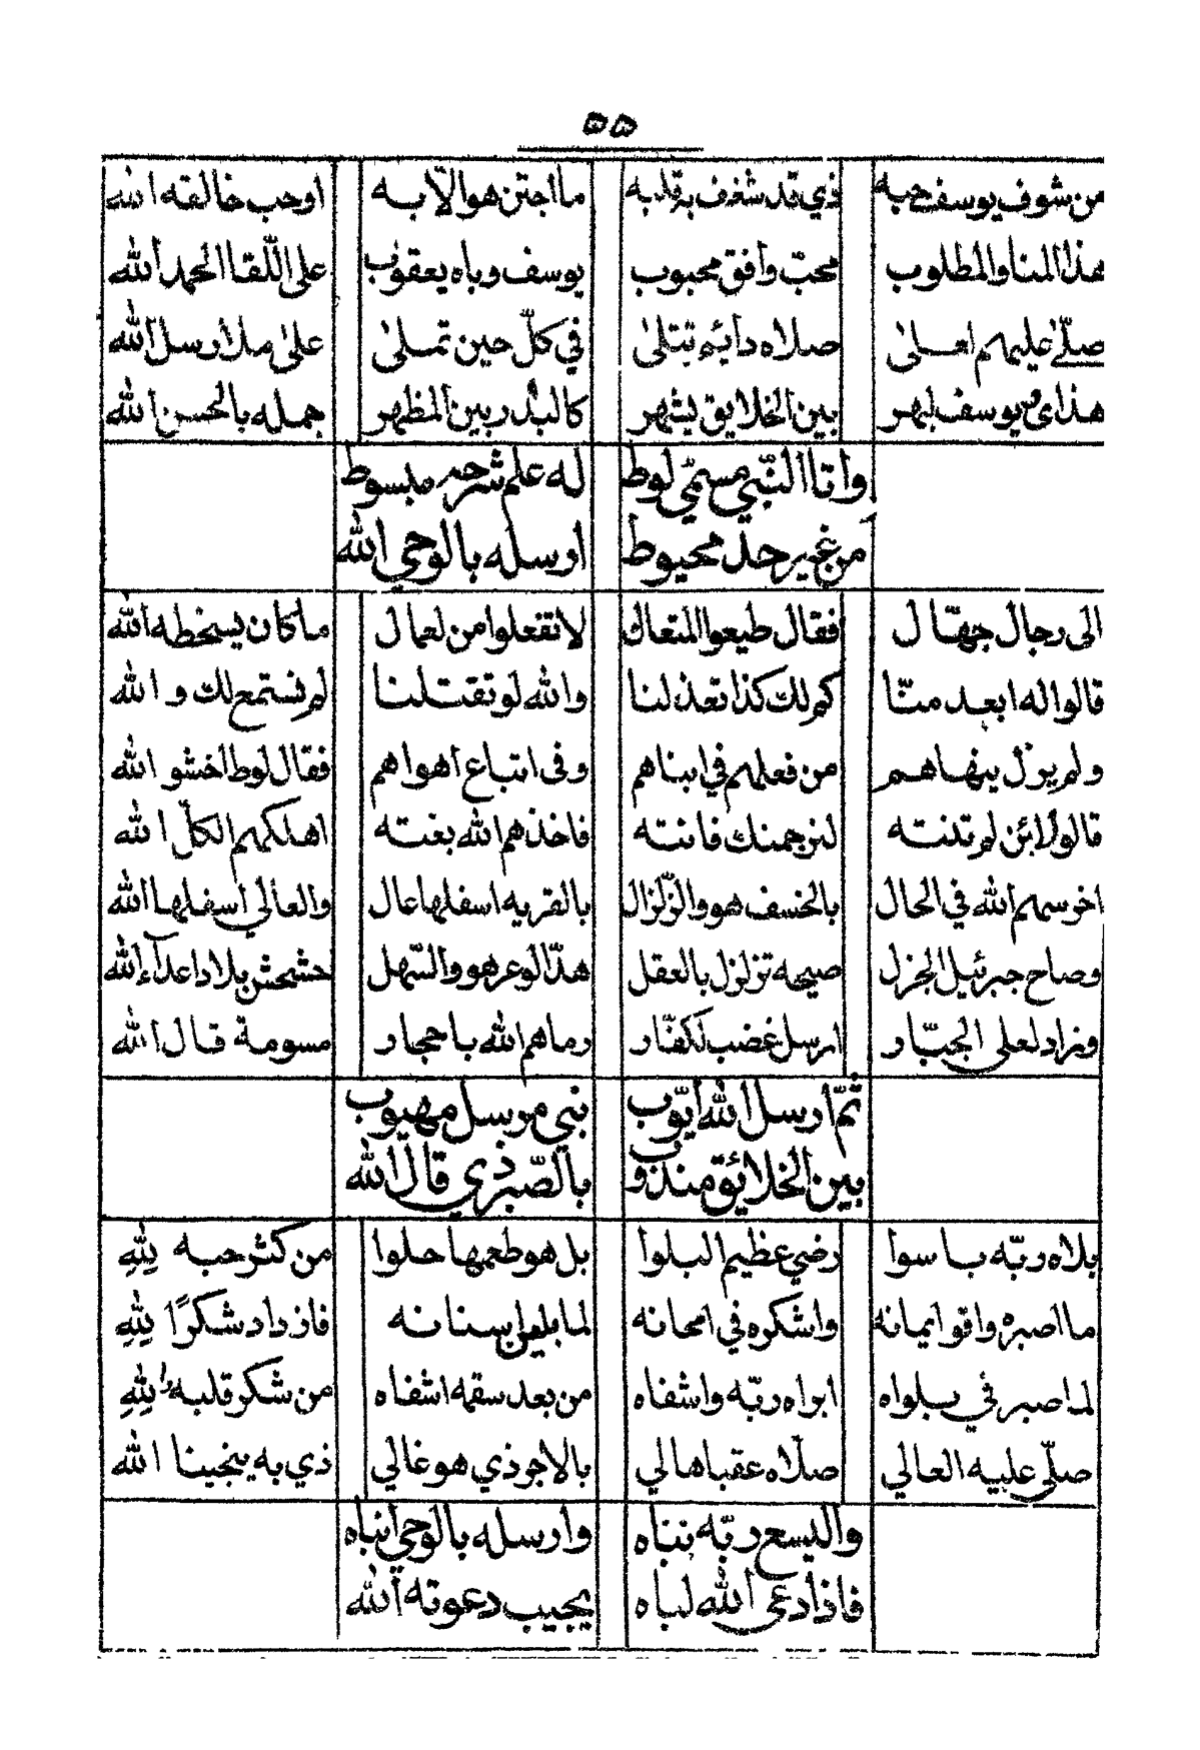 ٥٥
من شوف يوسف حبه ذي قد شغف به قلبه ما اجتن هو الّا به اوحب خالقه الله
هذا المنا والمطلوب محبّ وافق محبوب يوسف وباه يعقوب على اللّقا الحمد الله
صلّى عليهم اعلى صلاه دايم تتلى في كلّ حين تملى على ملا رسل الله
هذاى يوسف لبهر بين الخلايق يشهر كالبدر بين المظهر جمله بالحسن الله
واتا النّبي مسمّي لوط له علم شرحه مبسوط
من غير حد محيوط ارسله بالوحي الله
الى رجال جهّال فقال طيعوا المتعال لا تفعلوا من لعمال ما كان يسخطه الله
قالوا له ابعد منّا كم لك كذا تعذلنا والله لو تقتلنا لم نستمع لك والله
ولم يزل ينهاهم من فعلهم في ابناهم وفى اتباع اهواهم فقال لوط اخشو الله
قالوا لائن لم تدنته لنرجمنك فانته فاخذهم الله بغته اهلكهم الكلّ الله
اخرسهم الله في الحال بالخسف هو والزّلزال بالقريه اسفلها عال والعالي اسفلها الله
وصاح جبرئيل الجزل صيحه تزلزل بالعقل هدّ الوعر هو والسّهل حشحش بلاد اعدآء الله
وزاد لعلى الجبّار ارسل غضب لكفّار رماهم الله باحجار مسومة قال الله
ثمّ ارسل الله ايّوب نبي مرسل مهيوب
بين الخلائق مندوب بالصّبر ذي قال الله
بلاه ربّه باسوا رضي عظيم البلوا بل هو طعمها حلوا من كثر حبه لِلّهِ
ما اصبره واقو ايمانه واشكره في امحانه لما بلي باسنانه فازداد شكرًا لِلّهِ
لما صبر في بلواه ابراه ربّه واشفاه من بعد سقمه اشفاه من شكر قلبه لِلّهِ
صلّى عليه العالي صلّاه عقباها لي بالاجر ذي هو غالي ذي به ينجينا الله
واليسع ربّه نباه وارسله بالوحي انباه
فاذا دعى الله لباه يجيب دعوته الله